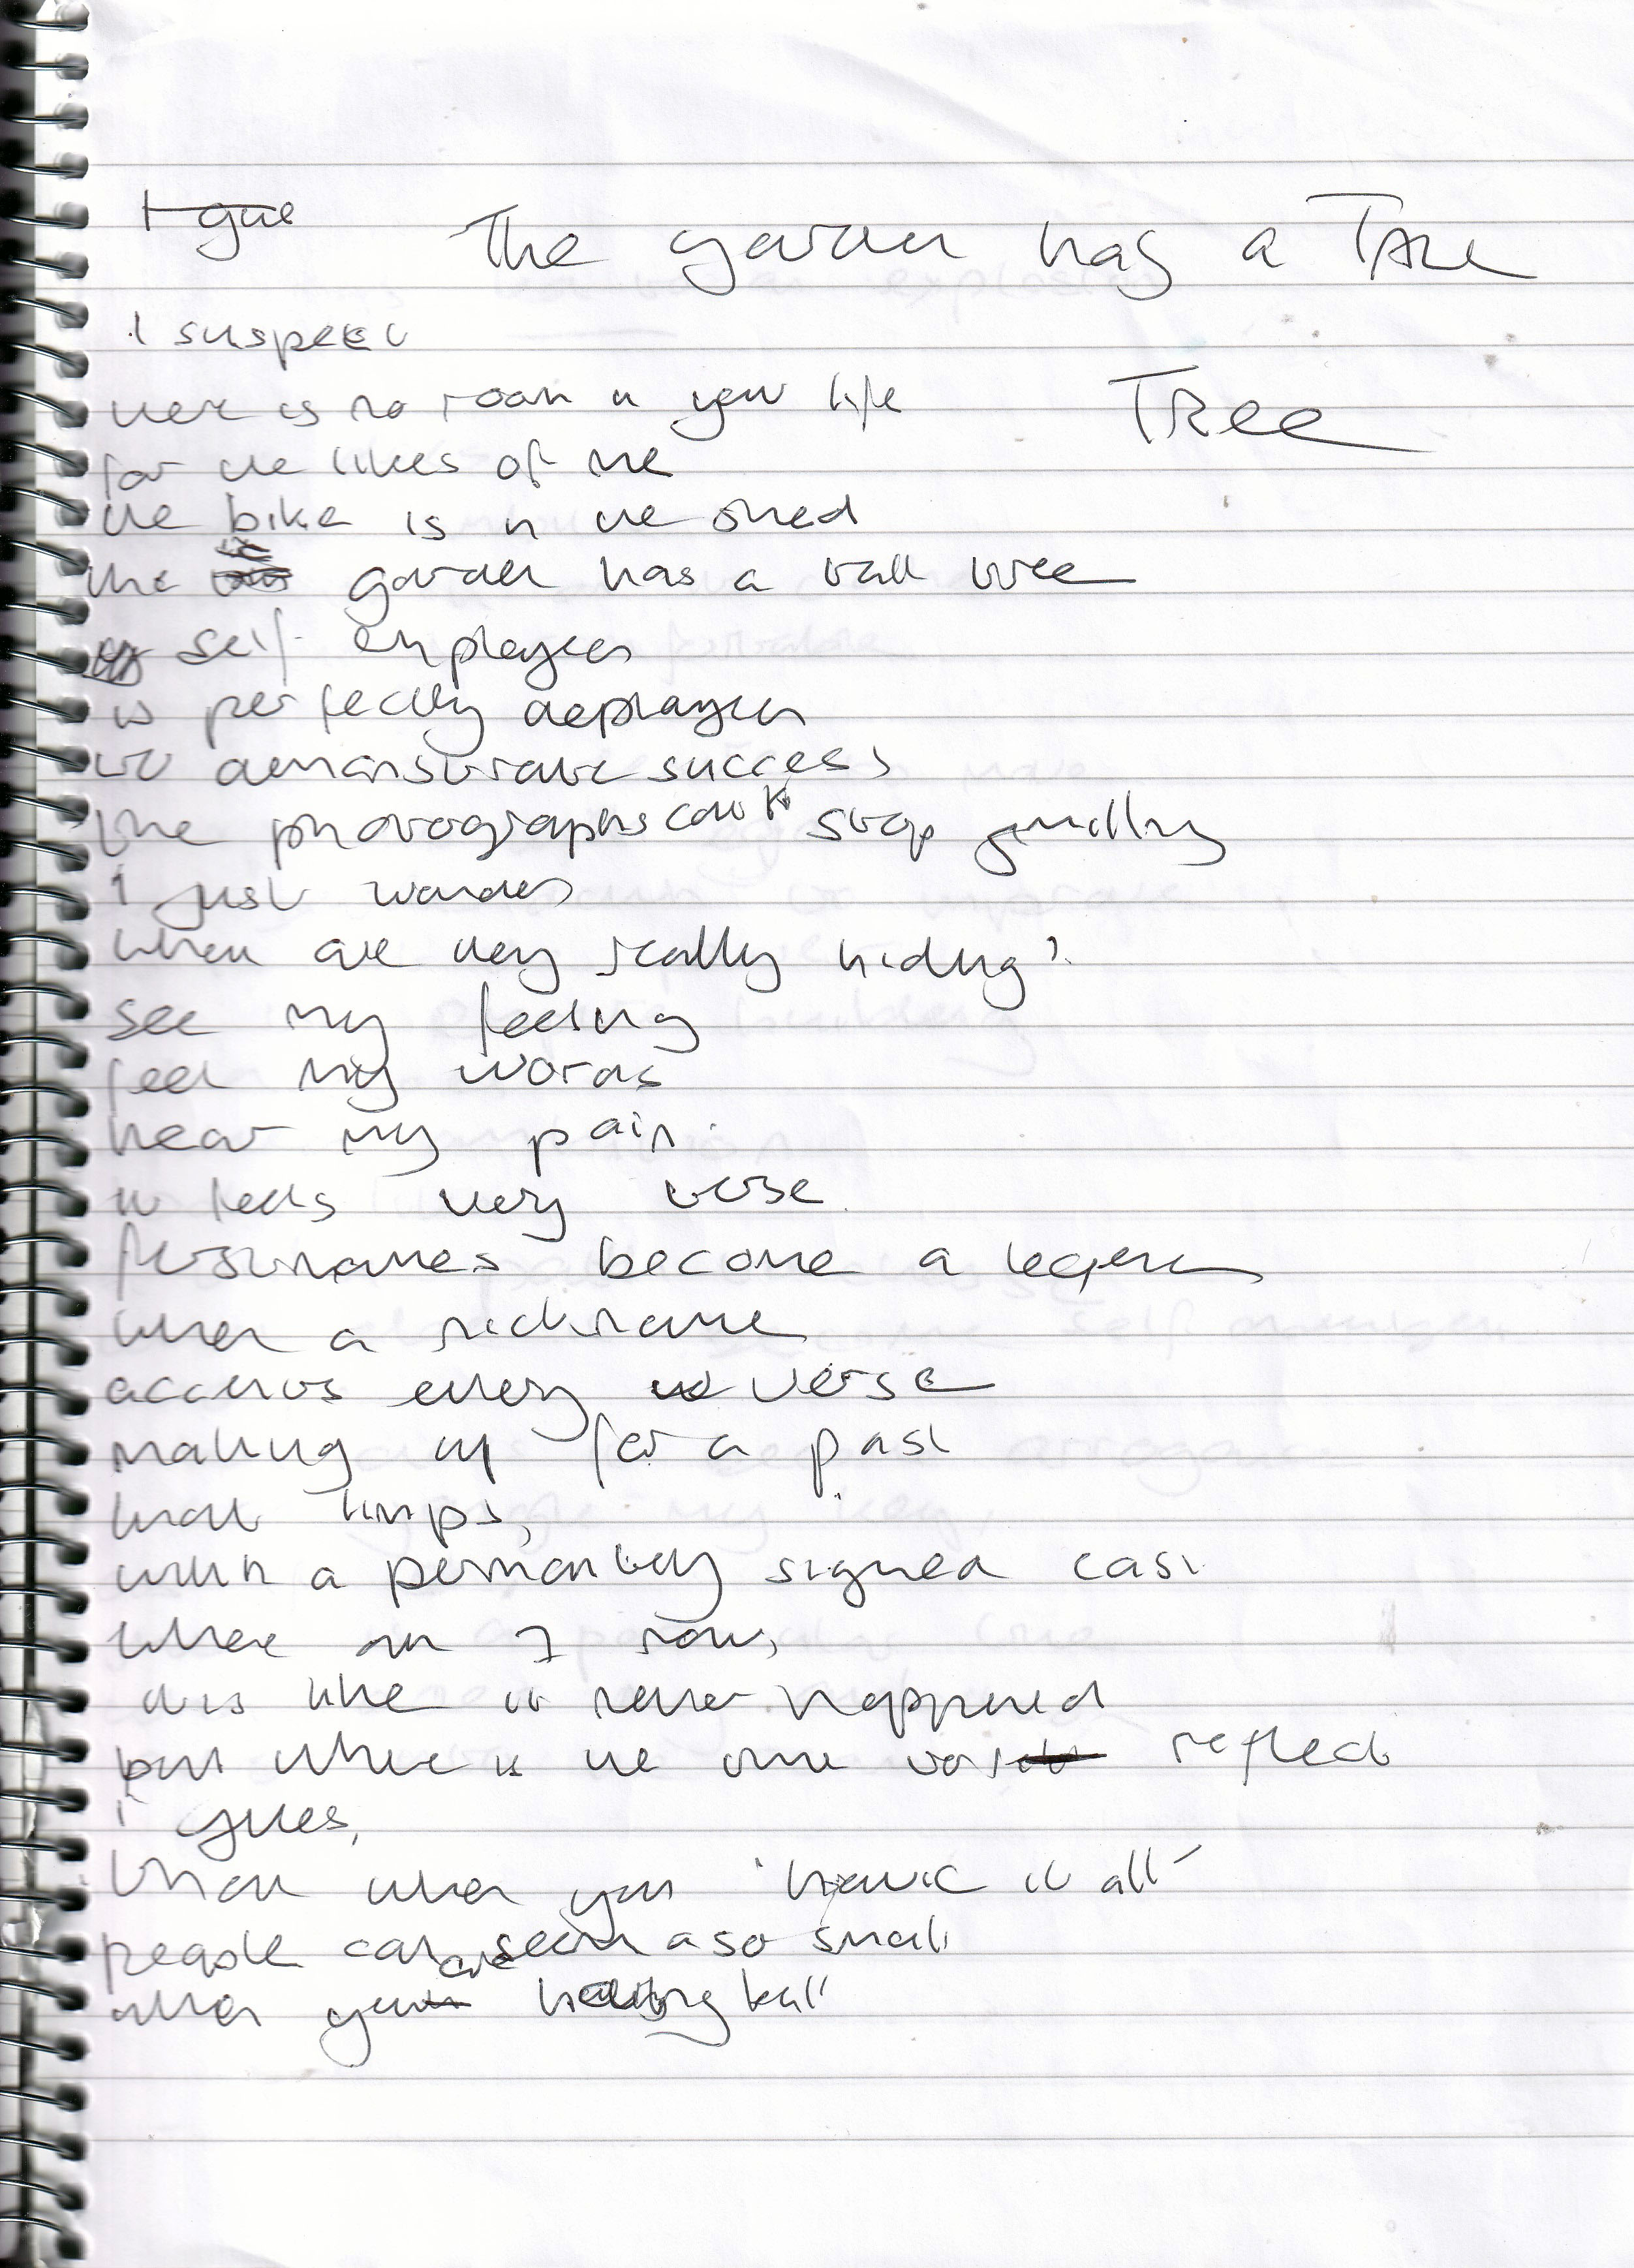 I gue
The garden has a Tall
Tree
I suspect
there is no room in your life
for the likes of me
the bike is in the shed
the garden has a tall tree
self employed
is perfectly deployed
to demonstrate success
the photographs can't stop smiling
I just wonder
what are they really hiding?
see my feeling
feel my words
hear my pain
it feels very terse
firstnames become a legend
when a nickname
accents every verse
making up for a past
that limps,
with a permanently signed cast
where am I now,
it's like it never happened
but where is the time to reflect
i guess,
that when you 'have it all'
people can seem so small
when you are tall